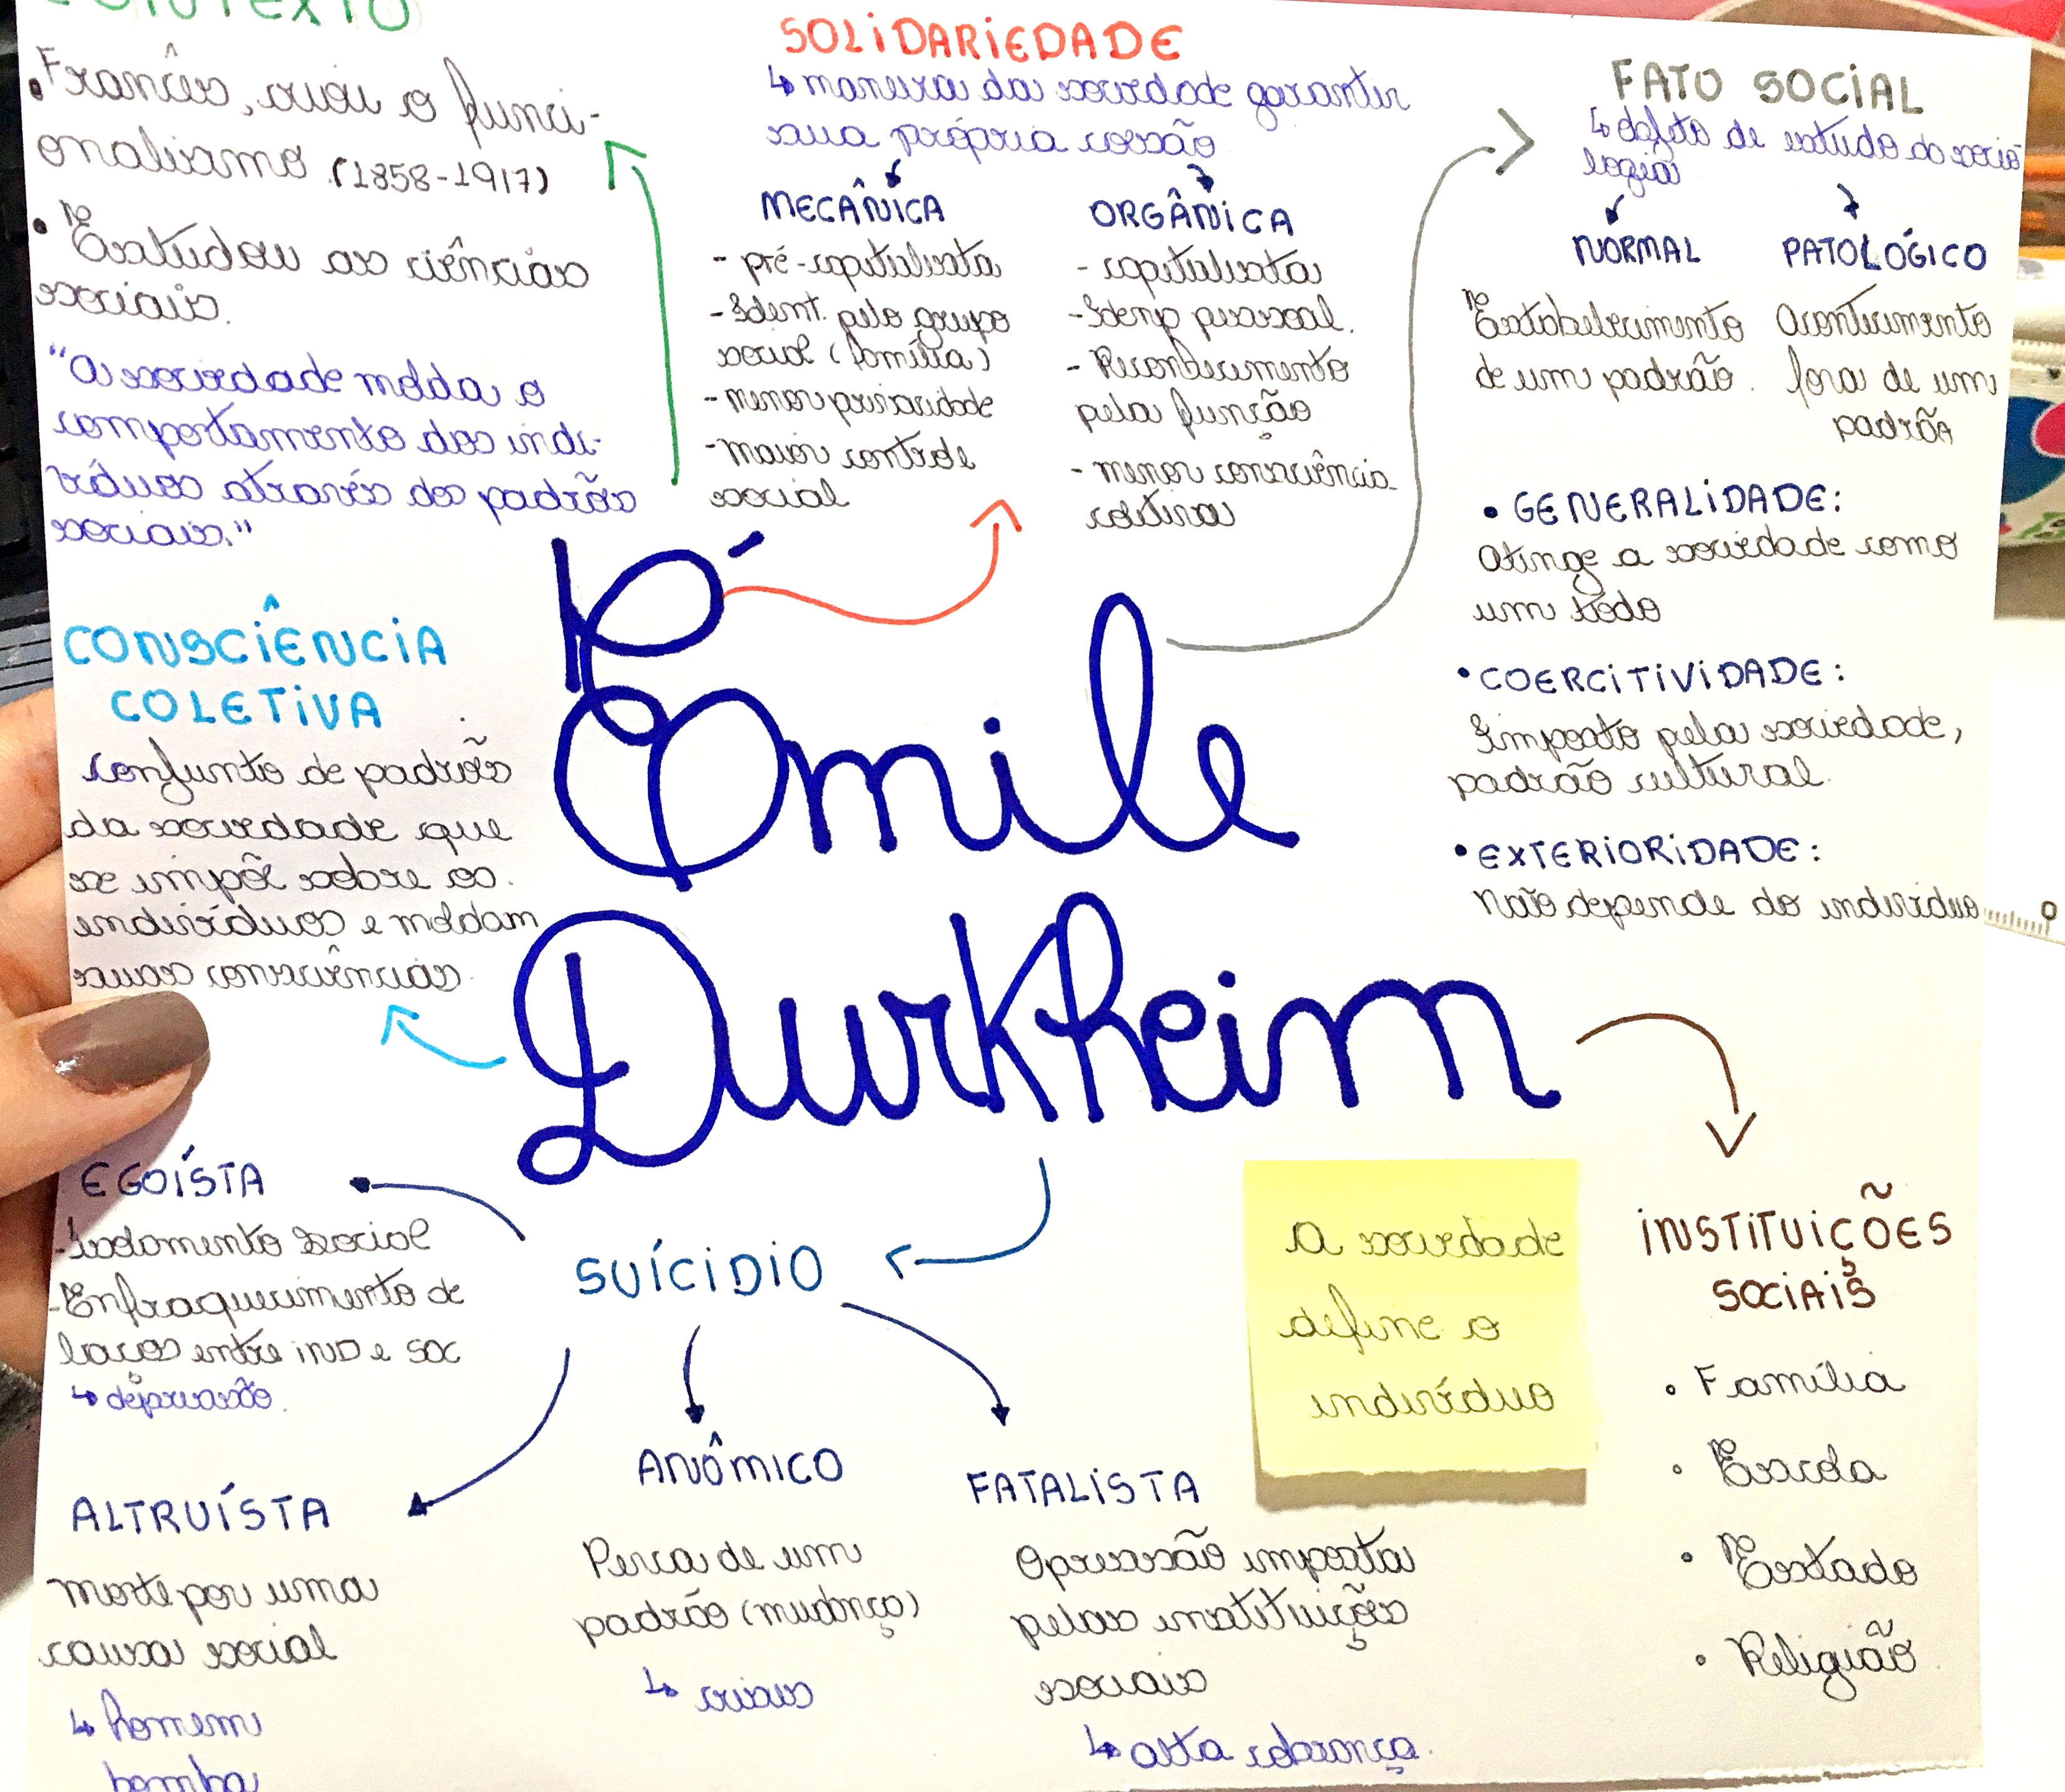 CONTEXTO
• Francês, criou o funci-
onalismo (1858-1917)
• Estudou as ciências
sociais.
"A sociedade molda o
comportamento dos indi-
víduos através dos padrão
sociais."
SOLIDARIEDADE
↳ maneira da sociedade garantir
sua própria coesão
MECÂNICA
- pré-capitalista
- Ident. pelo grupo
social (família)
- menor privacidade
- maior controle
social
ORGÂNICA
- capitalista
- Idenp pessoal.
- Reconhecimento
pela função
- menor consciência
coletiva
FATO SOCIAL
↳ objeto de estudo da socio
logia
NORMAL
Estabelecimento
de um padrão.
PATOLÓGICO
Acontecimento
fora de um
padrão
• GENERALIDADE:
Atinge a sociedade como
um todo
• COERCITIVIDADE:
Imposto pela sociedade,
padrão cultural.
• EXTERIORIDADE:
Não depende do indivíduo
CONSCIÊNCIA
COLETIVA
Conjunto de padrão
da sociedade que
se impõe sobre os
indivíduos e moldam
suas consciências.
Émile
Durkheim
EGOÍSTA
- Isolamento social
- Enfraquecimento de
laços entre IND e SOC
↳ depressão.
SUÍCIDIO
ALTRUÍSTA
morte por uma
causa social
↳ homem
bomba
ANÔMICO
Perca de um
padrão (mudança)
↳ crises
FATALISTA
Opressão imposta
pelas instituições
sociais
↳ alta cobrança.
A sociedade
define o
indivíduo
INSTITUIÇÕES
SOCIAIS
• Família
• Escola
• Estado
• Religião